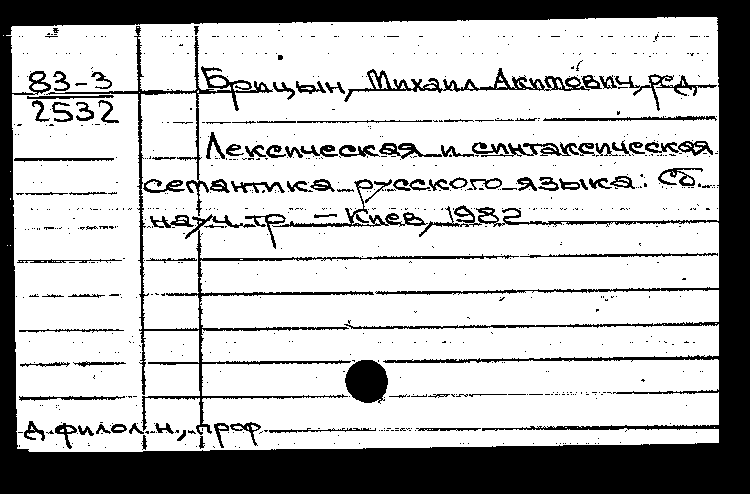 83-3
2532
Брицын, Михаил Акимович, ред.
Лексическая и синтаксическая
семантика русского языка: Сб.
науч. тр. – Киев, 1982
д. филол. н., проф